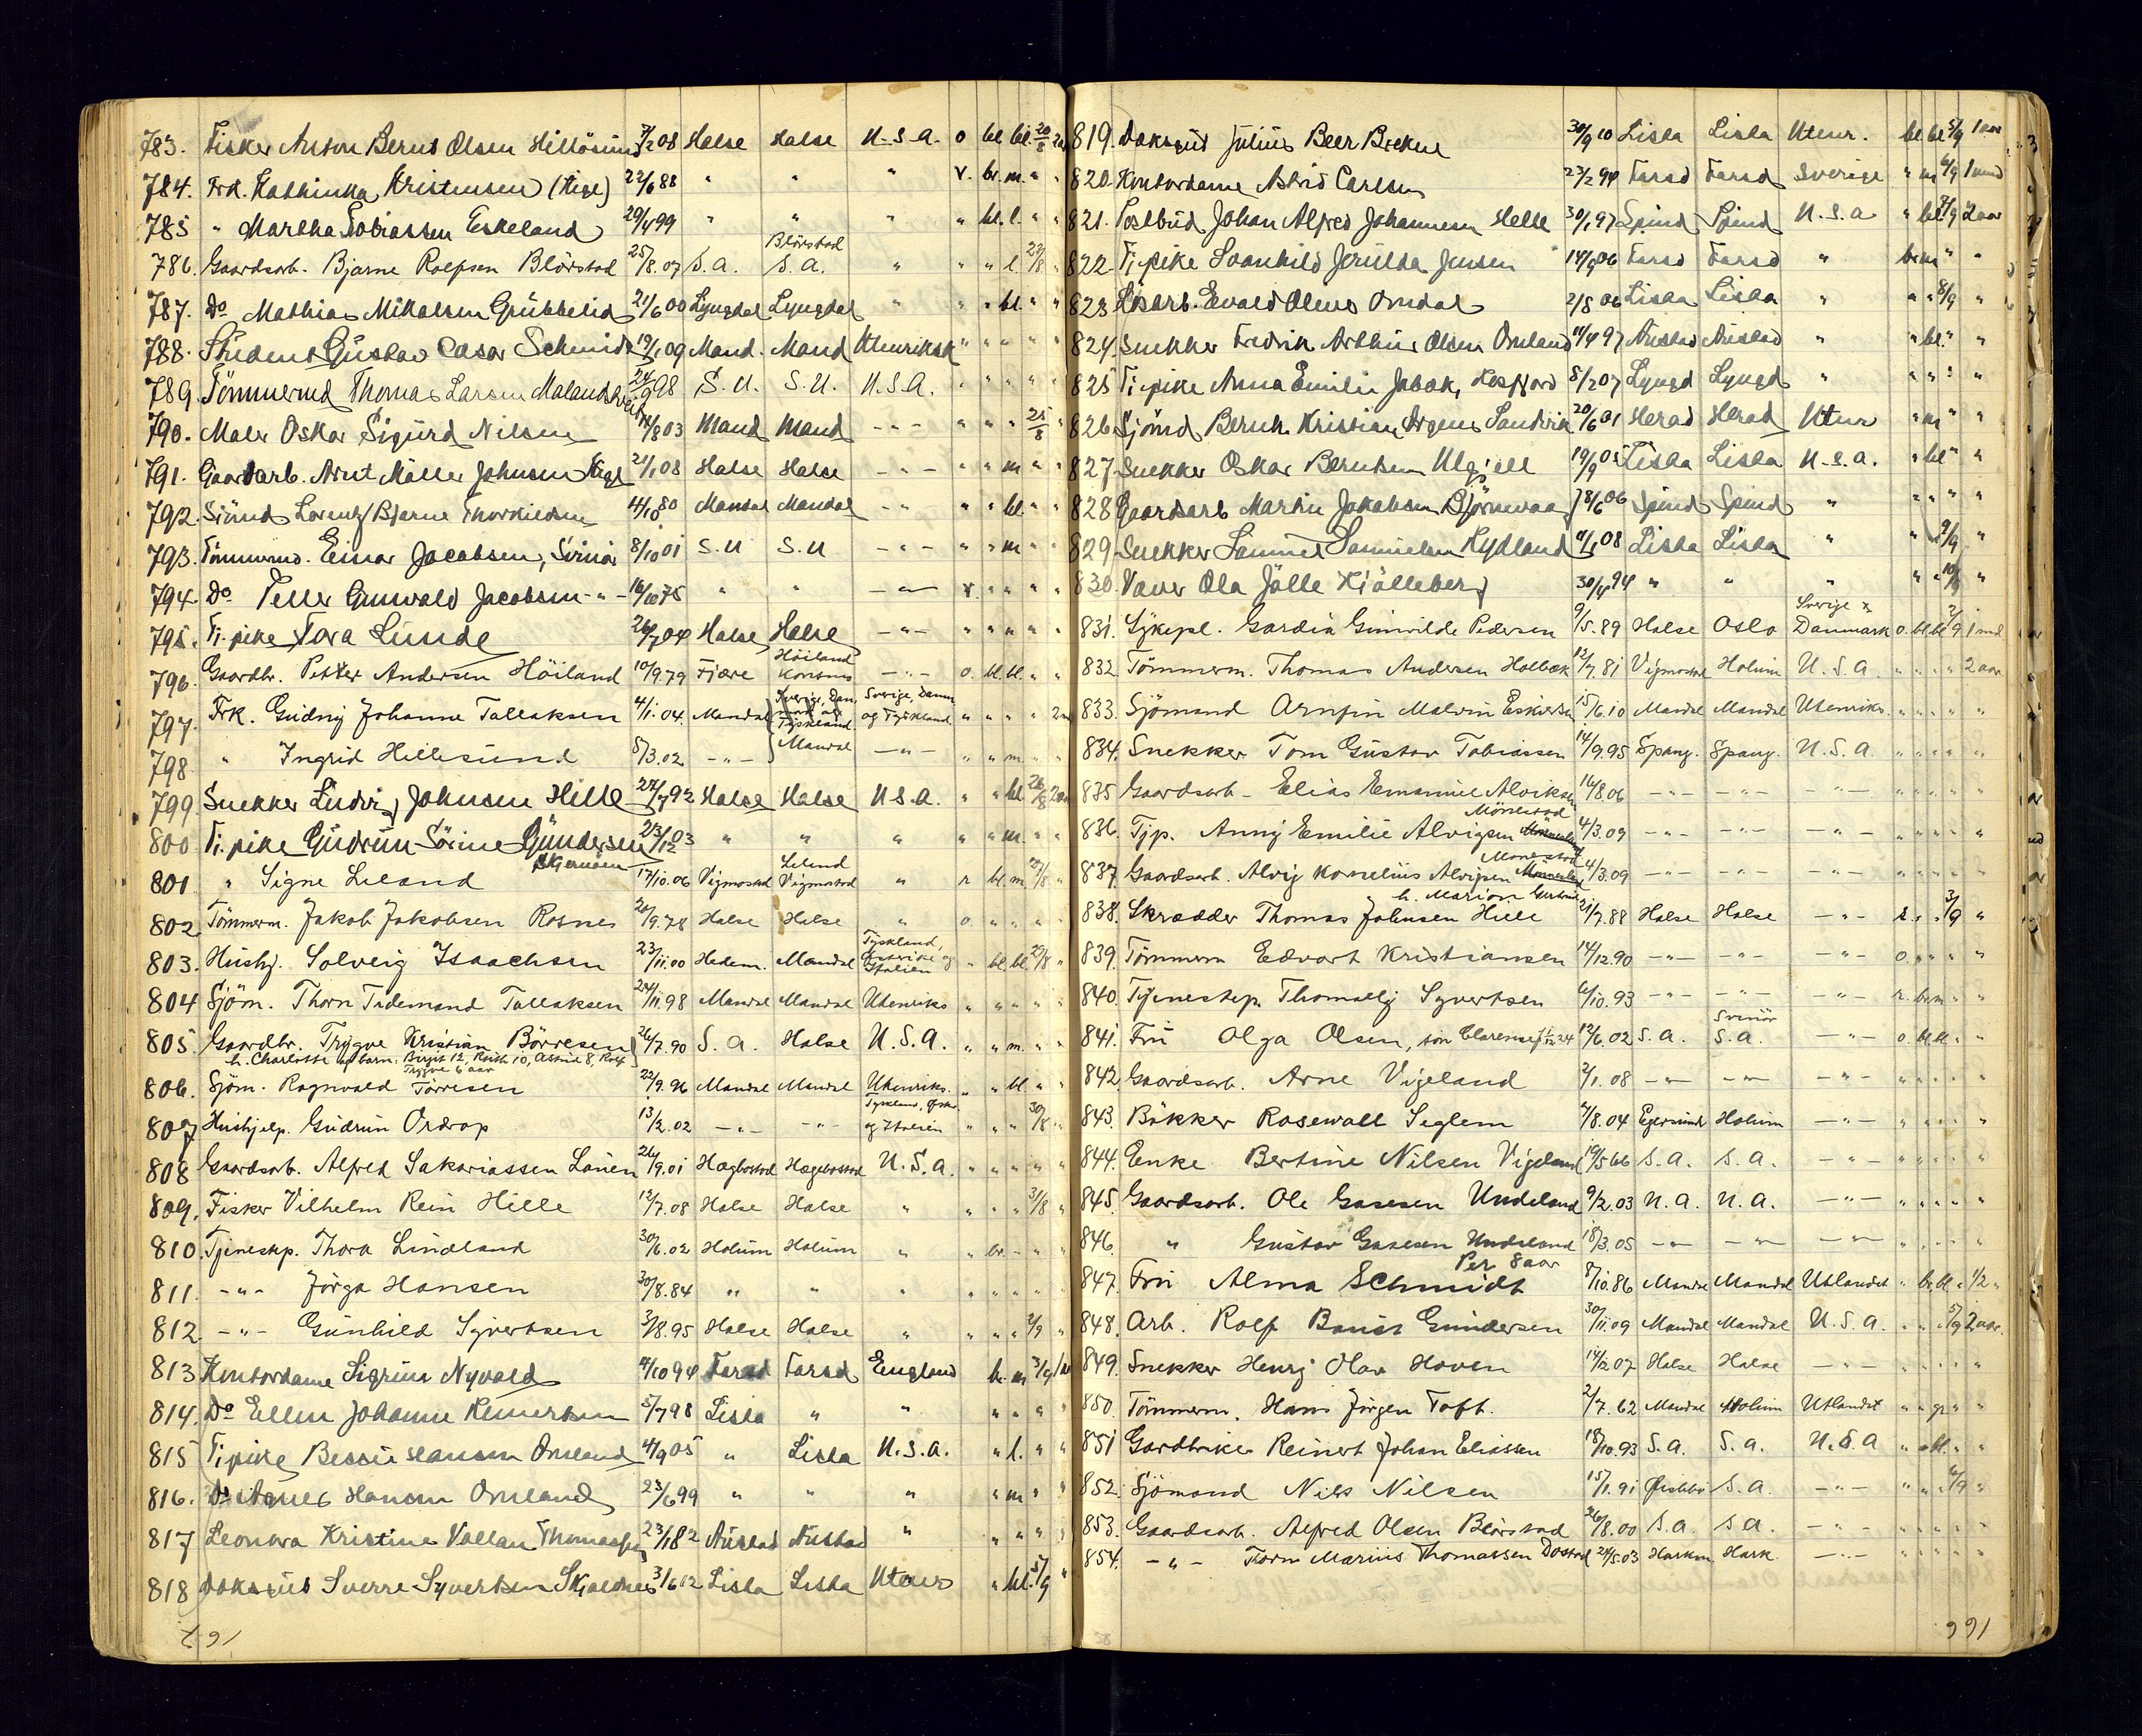 783. Fisker Anton Bernt Olsen Hillösund 7/2 08 Halse Halse U.S.A. o bl. bl. 20/8 2 aar
784. Frk. Kathinka Kristensen (Aige) 22/6 88 " " " r. br. m. " "
785 " Martha Tobiassen Eskeland 29/4 99 " " " " bl. l. " "
786. Gaardsarb. Bjarne Rolfsen Blörstad 25/8.07 S.A. Blörstad S.A. " " " l. 23/8 "
787. Do Mathias Mikalsen Grubbelid 21/6 00 Lyngdal Lyngdal " " " bl. " "
788. Student Gustav Cæsar Schmidt 19/1 09 Mand. Mand Utenriksk " " " " "
789. Tömmermd Thomas Larsen Malandsveit 24/9 98 S.U. S.U. U.S.A. " " " " "
790. Maler Oskar Sigurd Nilsen 14/8 03 Mand Mand - " - " " " 25/8
791. Gaardarb. Arnt Möller Johnsen Aige 21/1 08 Halse Halse - " - " " m " "
792. Sjömd Lorentz Bjarne Thorkildsen 14/10 80 Mandal Mandal - " - " " bl. " "
793. Tömmermd. Einar Jacobsen, Svinör 8/10 01 S.U S.U - " - " " m " "
794. Do Peller Grunvald Jacobsen - " - 16/10 75 " " - " - r. " " " "
795. Tj. pike Tora Lunde 26/7 04 Halse Halse - " - " " " " "
796. Gaardbr. Petter Andersen Höiland 10/9.79 Fjære Höiland Konsmo - " - o. bl. bl. " "
797. Frk. Gudny Johanne Tallaksen 4/1.04. Mandal Sverige, Danmark og Tyskland. Sverige, Danm og Tyskland " " " " 2 md
798 " Ingrid Hillesund 5/3.02 - " - Mandal - " - " " m. " "
799. Snekker Ludvig Johnsen Hille 27/7 92 Halse Halse U.S.A. " " bl 26/8 2 aar
800 Tj. pike Gudrun Sörine Gundersen Skjernöen 23/12 03 " " " " " m. " "
801 " Signe Leland 17/10.06 Vigmostad Leland Vigmostad " r bl. m. 27/8 "
802. Tömmerm. Jakob Jakobsen Rosnes 20/9.78 Halse Halse " o. " " " "
803. Hushj. Solveig Isaachsen 23/11.00 Hedem. Mandal Tyskland, Østerike og Italien " bl. bl. 29/8 "
804 Sjöm. Thorn Tidemand Tallaksen 24/11.98 Mandal Mandal Utenriks " " " " "
805. Gaardbr. Trygve Kristian Börresen 26/7.90 S.A. Halse U.S.A. " " m. " "
h. Charlotte og barn: Birgit 12, Ruth 10, Astrid 8, Rolf
Trygve 6 aar
806. Sjöm. Ragnvald Törresen 22/9.96 Mandal Mandal Utenriks. " " bl " "
807 Hushjelp. Gudrun Ordrop 13/2.02 - " - - " - Tyskland, Østr. og Italien " " " 30/8 "
808 Gaardsarb. Alfred Sakariassen Lauen 26/9.01 Hægbostad Hægebostad U.S.A. " " " " "
809. Fisker Vilhelm Rein Hille 12/7.08 Halse Halse " " " " 31/8 "
810. Tjenestep. Thora Lindland 30/6.02 Holum Holum " " br. - " "
811. - " - Jörga Hansen 30/8.84 " " " " " " " "
812. - " - Gunhild Syvertsen 3/8.95 Halse Halse " " " " 2/9 "
813 Kontordame Sigrun Nyvold 4/10 94 Farsd Farsd England br. m 3/9
814. Do Ellen Johanne Reinertsen 5/7 98 Lista " " " " "
815 Tj. pike Bessie Hansen Omland 4/9 05 " Lista U.S.A. " l. " "
816. Do Agnes Hansen Omland 23/6 99 " " " " m " "
817 Leonora Kristine Vallan Thomassen 23/1 82 Austad Austad " " " " "
818 Doksgut Sverre Syvertsen Skjoldnes 3/6 12 Lista Lista Utenr " bl. 5/9 "
819. Doksgut Julius Beer Brekne 30/9 10 Lista Lista Utenr. bl. bl. 5/9 1 aar
820. Kontordame Astrid Carlsen 23/2 94 Farsd Farsd Sverige " m 6/9 1 mnd
821. Postbud Johan Alfred Johannesen Helle 30/1 97 Spind Spind U.S.A " bl 7/9 2 aar
822. Tj. pike Svanhild Jerulda Jensen 14/9 06 Farsd Farsd " br. m " "
823 Lösarb. Evald Olens Omdal 2/8 06 Lista Lista " " " 8/9 "
824. Snekker Fredrik Arthur Olsen Omland 14/4 97 Austad Austad " " bl. " "
825 Tj. pike Anna Emilie Jabæk, Kosfjord 8/2 07 Lyngd Lyngd " " " " "
826. Sjömd Bernh. Kristian Argens Sandvik 20/6 01 Herad Herad Utenr " m " "
827. Snekker Oskar Berntsen Ulgjell 19/9 05 Lista Lista U.S.A. " bl " "
828 Gaardsarb Martin Jakobsen Björnevaag 18/6 06 Spind Spind " " " " "
829. Snekker Samuel Samuelsen Rydland 11/1 08 Lista Lista " " " 9/9 "
830. Væver Ola Jölle Kjölleberg 30/4 94 " " " " " 10/9 "
831. Sykepl. Gardia Gunvilde Pedersen 9/5.89 Halse Oslo Sverige & Danmark o. bl. bl. 2/9 1 md.
832. Tömmerm. Thomas Andersen Holbæk 12/7.81 Vigmostad Holum U.S.A. " " " " 2 aar.
833. Sjömand Arnfin Malvin Eskiersen 15/6.10 Mandal Mandal Utenriks. " " " " "
834. Snekker Tom Gustav Tobiassen 14/9.95 Spang. Spang. U.S.A. " " " " "
835 Gaardsarb - Elias Emanuel Alviksen 16/8.06 - " - - " - - " - " " " " "
836. Tjp. Anny Emilie Alvigsen Mönnestad 4/3.09 - " - - " - - " - " " " " "
837. Gaardsarb. Alvig Kornelius Alvigsen Monestad 4/3.09 - " - - " - - " - " " " " "
838. Skrædder Thomas Johnsen Hille h. Marion Gurine 21/7.88 Halse Halse - " - r. " " 3/9 "
839. Tömmerm Edvart Kristiansen 14/12.90 - " - - " - - " - o. " " " "
840. Tjenestep. Thomselj Syvertsen 6/10.93 - " - - " - - " - r. br. m " "
841. Fru Olga Olsen, sön Clarence f. 1/12 24 12/6.02 S.A. Svinör S.A. - " - o. bl. bl. " "
842. Gaardsarb. Arne Vigeland 2/1.08 - " - - " - - " - " " " " "
843. Bakker Rosewall Seglem 4/8.04 Egersund Holum - " - " " " " "
844. Enke Bertine Nilsen Vigeland 19/5 66 S.A. S.A. - " - " " " " "
845. Gaardsarb. Ole Gasesen Undeland 9/2.03 N.A. N.A. - " - " " " " "
846. " Gustav Gasesen Undeland 18/3.05 - " - - " - - " - " " " " "
847. Fru Alma Schmidt Per 8 aar 8/10.86 Mandal Mandal Utlandet " br. bl. " 1/2 "
848. Arb. Rolf Gundersen 30/11.09 Mandal Mandal U.S.A. " " " 5/9 2 aar.
849. Snekker Henry Olav Hoven 14/2.07 Halse Halse - " - " " " " "
850. Tömmerm. Hans Jörgen Toft. 2/7.62 Mandal Holum Utlandet " " gr " "
851 Gardbruker Reinert Johan Eliassen 18/10.93 S.A. S.A. U.S.A " " bl. " "
852. Sjömand Nils Nilsen 15/1.91 S.A. - " - " " " 6/9 "
853. Gaardsarb. Alfred Olsen Blörstad 26/8.00 S.A. S.A. - " - " " " " "
854. - " - Thorn Marius Thomassen Dostad 24/5.03 Harkm Hark. - " - " " " " "